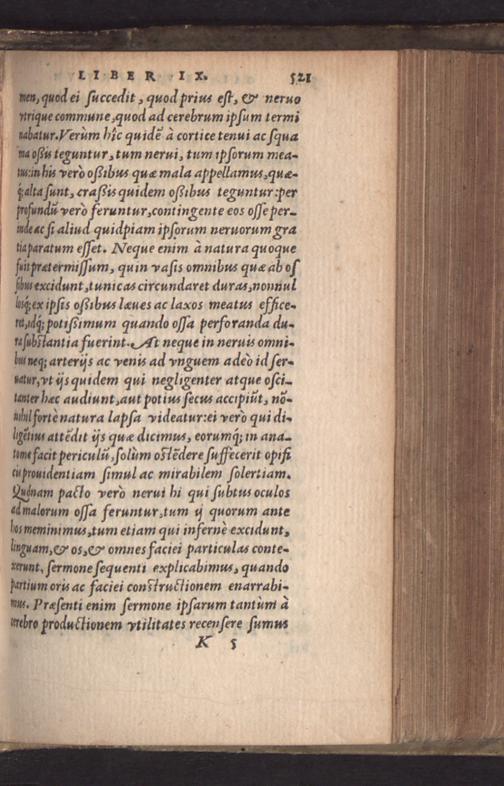 LIBER IX. 521
men, quod ei succedit, quod prius est, & neruo
vtrique commune, quod ad cerebrum ipsum termi
nabatur. Verùm hîc quidē à cortice tenui ac squa
ma oßis teguntur, tum nerui, tum ipsorum mea-
tus: in his verò oßibus quæ mala appellamus, quæ-
q; alta sunt, craßis quidem oßibus teguntur: per
profundū verò feruntur, contingente eos osse per-
inde ac si aliud quidpiam ipsorum neruorum gra
tia paratum esset. Neque enim à natura quoque
fuit prætermissum, quin vasis omnibus quæ ab os
sibus excidunt, tunicas circundaret duras, nonnul
losq; ex ipsis oßibus læues ac laxos meatus effice-
ret, idq; potißimum quando ossa perforanda du-
ra substantia fuerint. At neque in neruis omni-
bus neq; arterijs ac venis ad vnguem adeò id ser-
uatur, vt ijs quidem qui negligenter atque osci-
tanter hæc audiunt, aut potius secus accipiūt, nō-
nihil fortè natura lapsa videatur: ei verò qui di-
ligētius attēdit ijs quæ dicimus, eorumq; in ana-
tome facit periculū, solùm ostēdere suffecerit opifi
cis prouidentiam simul ac mirabilem solertiam.
Quónam pacto verò nerui hi qui subtus oculos
ad malorum ossa feruntur, tum ij quorum ante
hos meminimus, tum etiam qui infernè excidunt,
linguam, & os, & omnes faciei particulas conte-
xerunt, sermone sequenti explicabimus, quando
partium oris ac faciei constructionem enarrabi-
mus. Præsenti enim sermone ipsarum tantùm à
cerebro productionem vtilitates recensere sumus
K 5